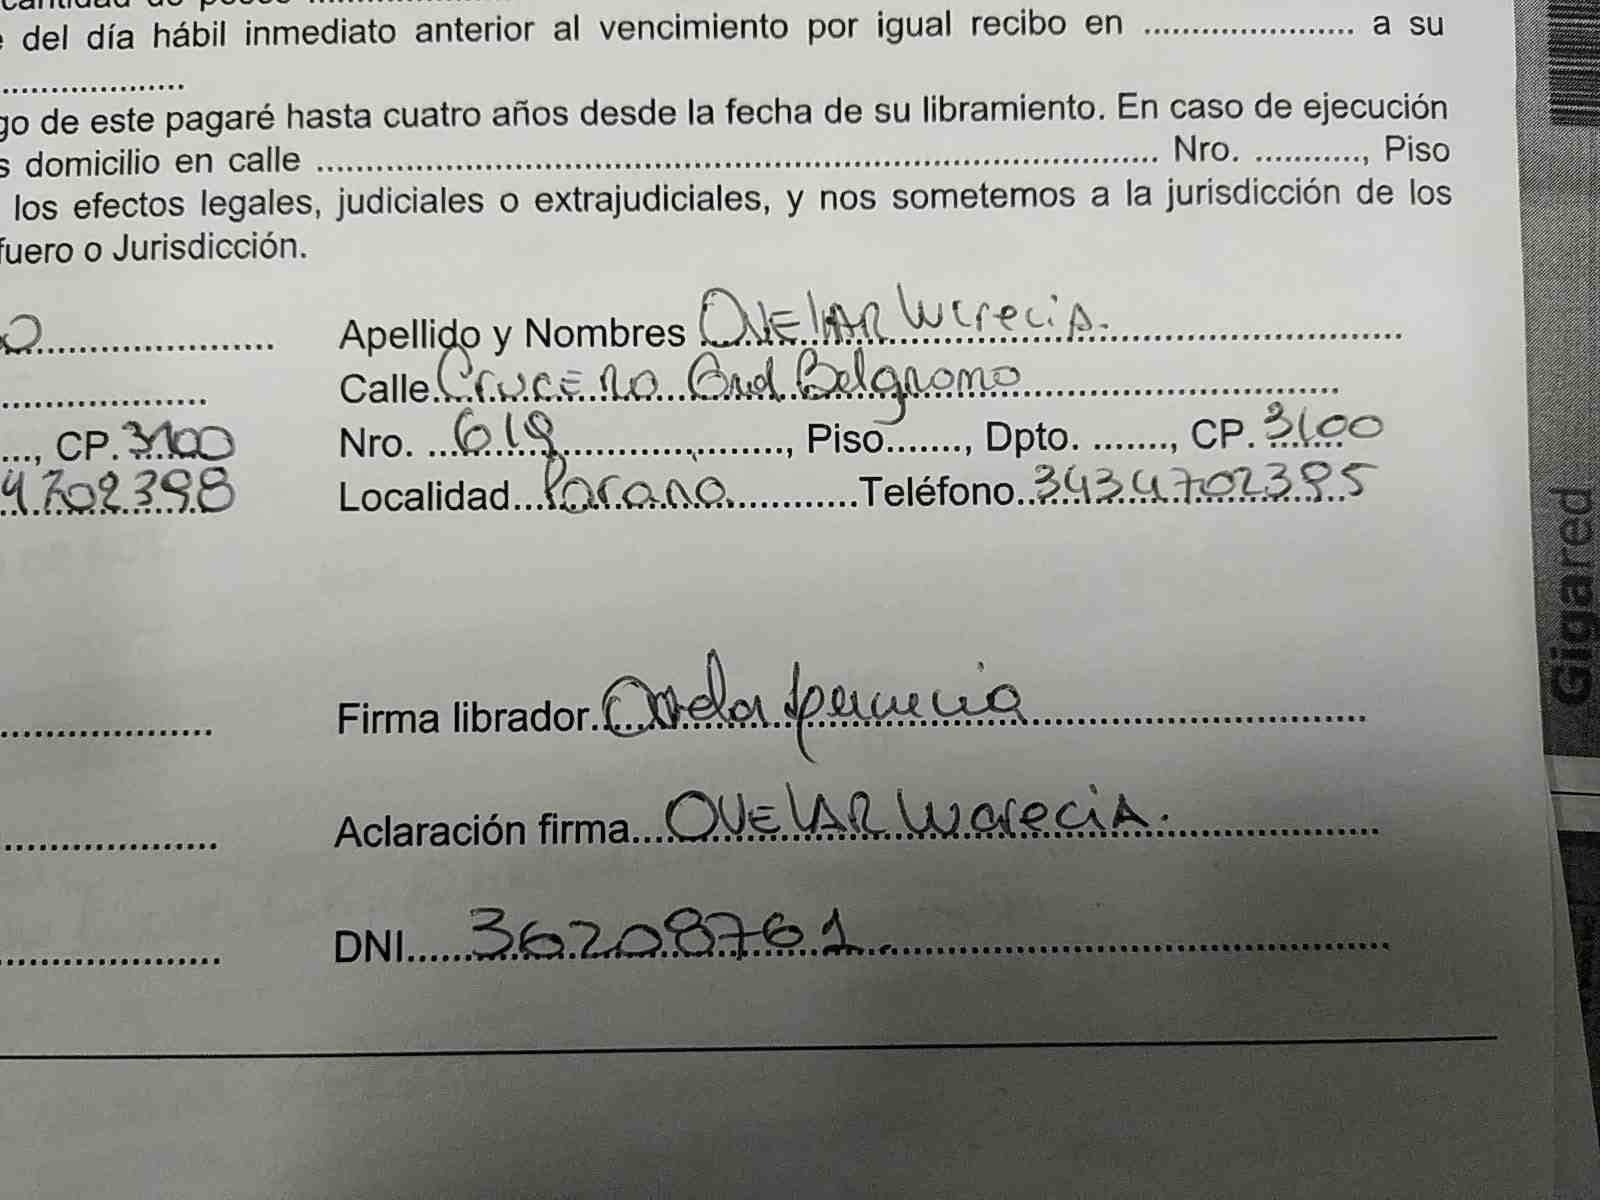 cantidad de pesos ..................
e del día hábil inmediato anterior al vencimiento por igual recibo en ...................... a su
....................
go de este pagaré hasta cuatro años desde la fecha de su libramiento. En caso de ejecución
s domicilio en calle .................................................................................... Nro. ..........., Piso
los efectos legales, judiciales o extrajudiciales, y nos sometemos a la jurisdicción de los
fuero o Jurisdicción.
Apellido y Nombres OVELAR Lucrecia.
Calle Crucero Gral Belgrano
CP. 3100 Nro. 619, Piso......., Dpto. ......., CP. 3100
4702398 Localidad Parana Teléfono 3434702395
Firma librador Ovelar Lucrecia
Aclaración firma OVELAR Lucrecia.
DNI 36208761.
Gigared